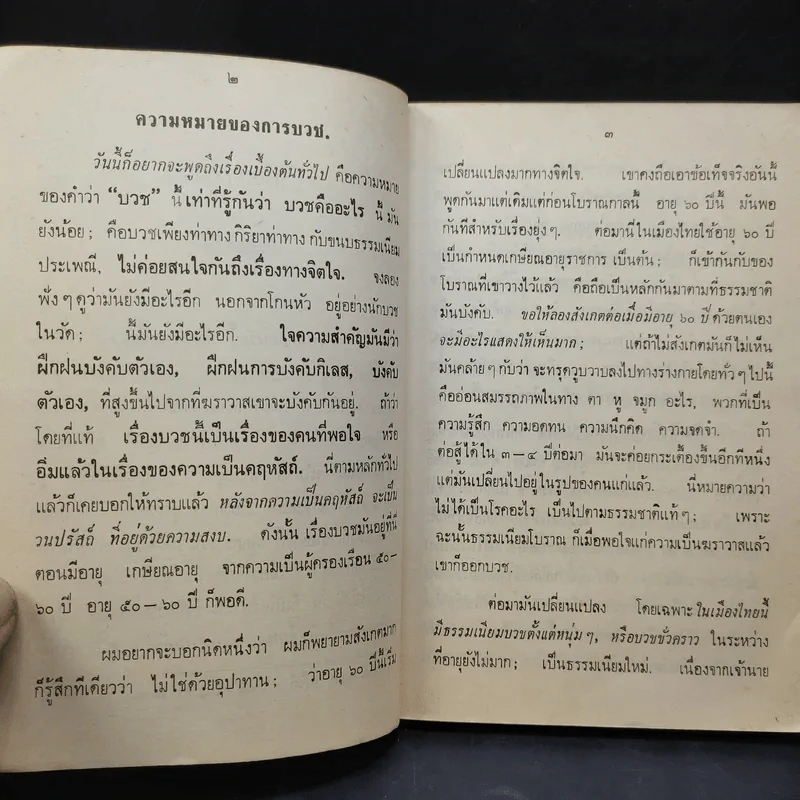 ๒
ความหมายของการบวช.
วันนี้ก็อยากจะพูดถึงเรื่องเบื้องต้นทั่วไป คือความหมาย
ของคำว่า “บวช” นี้ เท่าที่รู้กันว่า บวชคืออะไร นี้ มัน
ยังน้อย; คือบวชเพียงท่าทาง กิริยาท่าทาง กับขนบธรรมเนียม
ประเพณี, ไม่ค่อยสนใจกันถึงเรื่องทางจิตใจ. จงลอง
ฟัง ๆ ดูว่ามันยังมีอะไรอีก นอกจากโกนหัว อยู่อย่างนักบวช
ในวัด; นี้มันยังมีอะไรอีก. ใจความสำคัญมันมีว่า
ฝึกฝนบังคับตัวเอง, ฝึกฝนการบังคับกิเลส, บังคับ
ตัวเอง, ที่สูงขึ้นไปจากที่ฆราวาสเขาจะบังคับกันอยู่. ถ้าว่า
โดยที่แท้ เรื่องบวชนี้เป็นเรื่องของคนที่พอใจ หรือ
อิ่มแล้วในเรื่องของความเป็นคฤหัสถ์. นี่ตามหลักทั่วไป
แล้วก็เคยบอกให้ทราบแล้ว หลังจากความเป็นคฤหัสถ์ จะเป็น
วนปรัสถ์ ที่อยู่ด้วยความสงบ. ดังนั้น เรื่องบวชมันอยู่ที่นี่
ตอนมีอายุ เกษียณอายุ จากความเป็นผู้ครองเรือน ๕๐—
๖๐ ปี อายุ ๕๐—๖๐ ปี ก็พอดี.
ผมอยากจะบอกนิดหนึ่งว่า ผมก็พยายามสังเกตมาก
ก็รู้สึกทีเดียวว่า ไม่ใช่ด้วยอุปาทาน; ว่าอายุ ๖๐ ปีนี้เริ่ม
๓
เปลี่ยนแปลงมากทางจิตใจ. เขาคงถือเอาข้อเท็จจริงอันนี้
พูดกันมาแต่เดิมแต่ก่อนโบราณกาลนี้ อายุ ๖๐ ปีนี้ มันพอ
กันทีสำหรับเรื่องยุ่ง ๆ. ต่อมานี่ในเมืองไทยใช้อายุ ๖๐ ปี
เป็นกำหนดเกษียณอายุราชการ เป็นต้น; ก็เข้ากันกับของ
โบราณที่เขาวางไว้แล้ว คือถือเป็นหลักกันมาตามที่ธรรมชาติ
มันบังคับ. ขอให้ลองสังเกตต่อเมื่อมีอายุ ๖๐ ปี ด้วยตนเอง
จะมีอะไรแสดงให้เห็นมาก; แต่ถ้าไม่สังเกตมันก็ไม่เห็น
มันคล้าย ๆ กับว่า จะทรุดวูบวาบลงไปทางร่างกายโดยทั่ว ๆ ไปนี้
คืออ่อนสมรรถภาพในทาง ตา หู จมูก อะไร, พวกที่เป็น
ความรู้สึก ความอดทน ความนึกคิด ความจดจำ. ถ้า
ต่อสู้ได้ใน ๓—๔ ปีต่อมา มันจะค่อยกระเตื้องขึ้นอีกทีหนึ่ง
แต่มันเปลี่ยนไปอยู่ในรูปของคนแก่แล้ว. นี่หมายความว่า
ไม่ได้เป็นโรคอะไร เป็นไปตามธรรมชาติแท้ ๆ; เพราะ
ฉะนั้นธรรมเนียมโบราณ ก็เมื่อพอใจแก่ความเป็นฆราวาสแล้ว
เขาก็ออกบวช.
ต่อมามันเปลี่ยนแปลง โดยเฉพาะ ในเมืองไทยนี้
มีธรรมเนียมบวชตั้งแต่หนุ่ม ๆ, หรือบวชชั่วคราว ในระหว่าง
ที่อายุยังไม่มาก; เป็นธรรมเนียมใหม่. เนื่องจากเจ้านาย